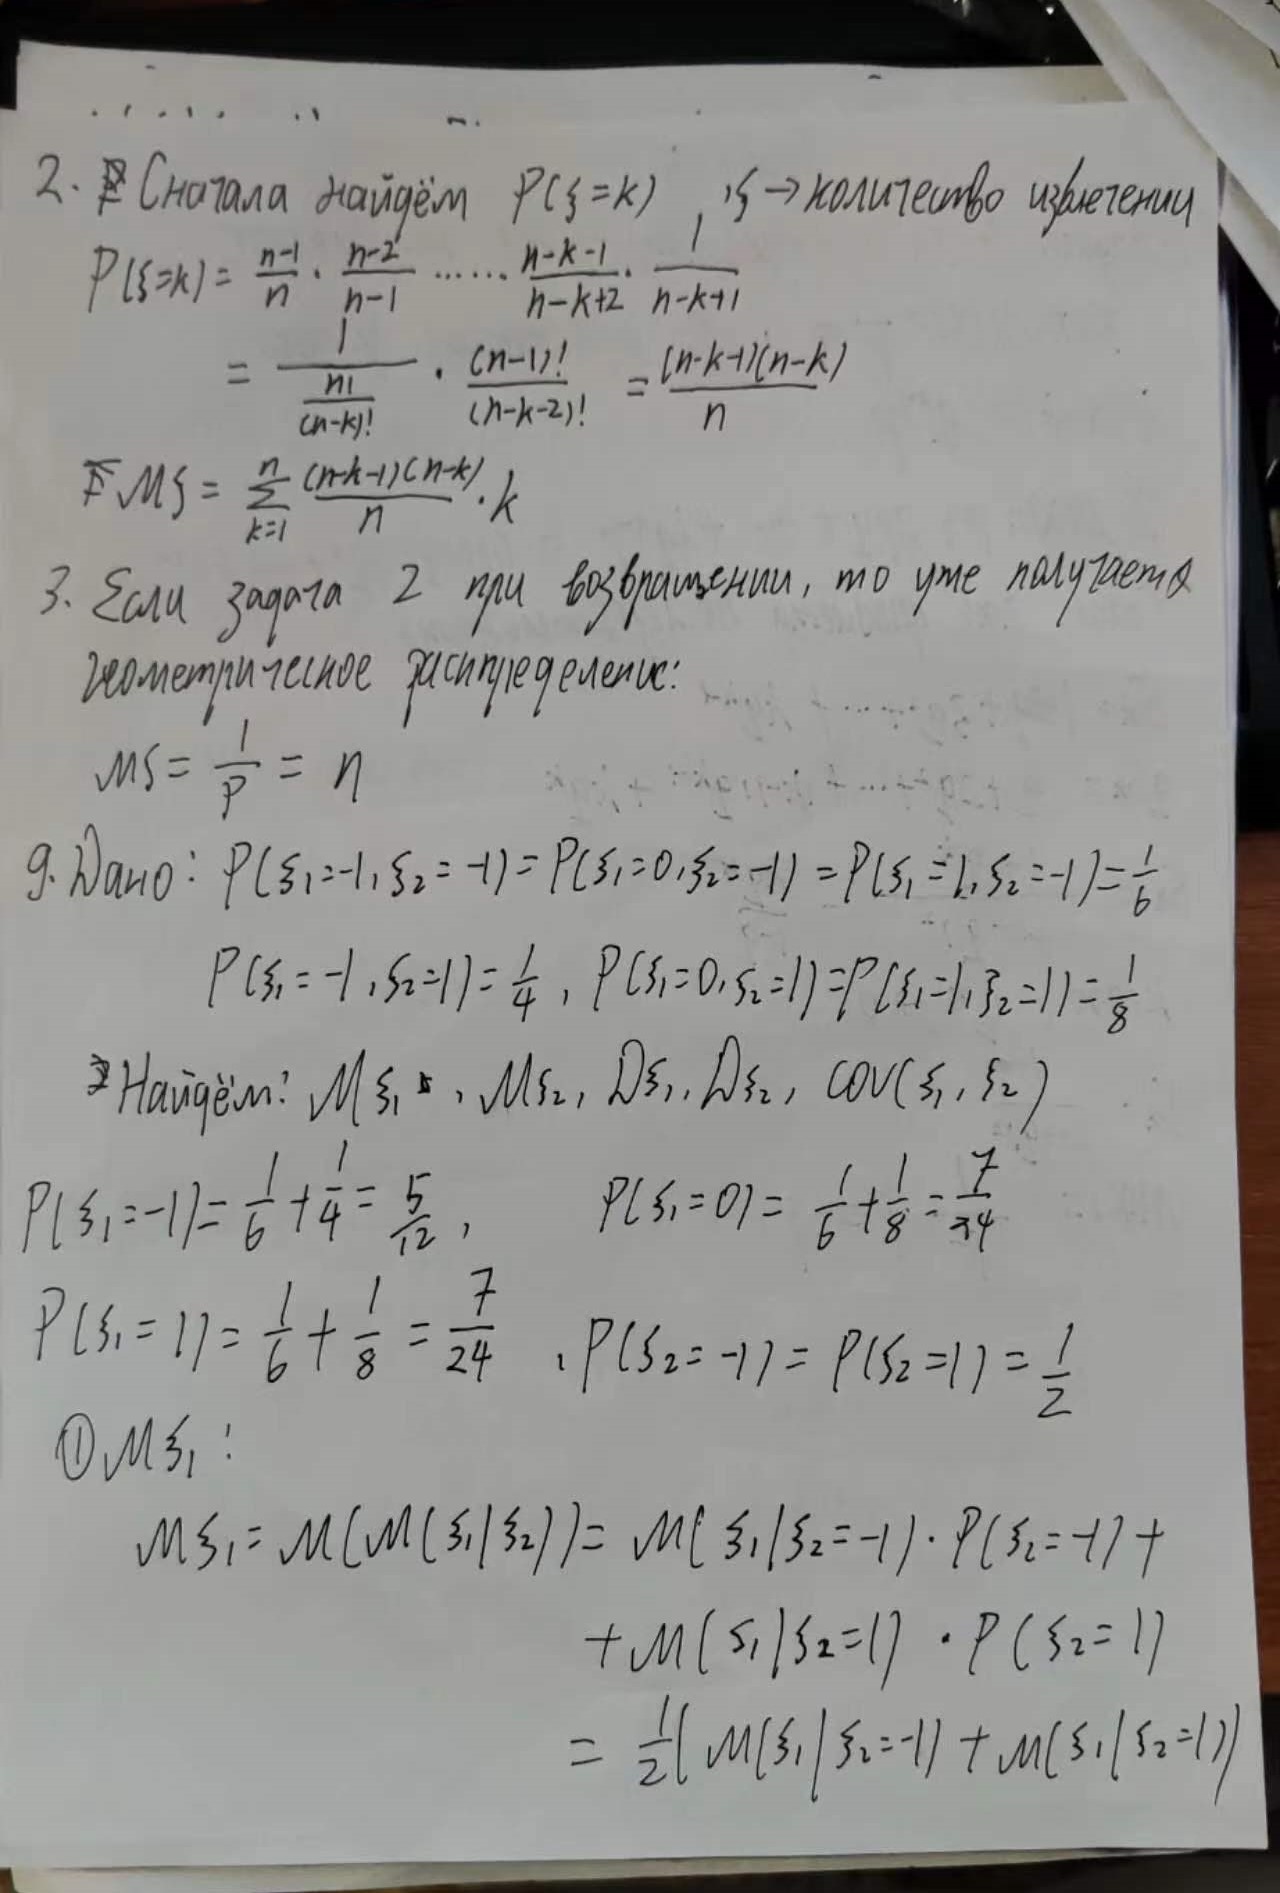 2. Сначала найдём P(ξ=k), ξ → количество извлечении
P(ξ=k) = \frac{n-1}{n} · \frac{n-2}{n-1} ...... \frac{n-k-1}{n-k+2} · \frac{1}{n-k+1}
= \frac{1}{\frac{n!}{(n-k)!}} · \frac{(n-1)!}{(n-k-2)!} = \frac{(n-k-1)(n-k)}{n}
Mξ = \sum_{k=1}^{n} \frac{(n-k-1)(n-k)}{n} · k
3. Если задача 2 при возвращении, то уже получается
геометрическое распределение:
Mξ = \frac{1}{P} = n
9. Дано: P(ξ₁=-1, ξ₂=-1) = P(ξ₁=0, ξ₂=-1) = P(ξ₁=1, ξ₂=-1) = \frac{1}{6}
P(ξ₁=-1, ξ₂=1) = \frac{1}{4}, P(ξ₁=0, ξ₂=1) = P(ξ₁=1, ξ₂=1) = \frac{1}{8}
Найдём: Mξ₁, Mξ₂, Dξ₁, Dξ₂, cov(ξ₁, ξ₂)
P(ξ₁=-1) = \frac{1}{6} + \frac{1}{4} = \frac{5}{12}, P(ξ₁=0) = \frac{1}{6} + \frac{1}{8} = \frac{7}{24}
P(ξ₁=1) = \frac{1}{6} + \frac{1}{8} = \frac{7}{24}, P(ξ₂=-1) = P(ξ₂=1) = \frac{1}{2}
① Mξ₁:
Mξ₁ = M(M(ξ₁|ξ₂)) = M(ξ₁|ξ₂=-1) · P(ξ₂=-1) +
+ M(ξ₁|ξ₂=1) · P(ξ₂=1)
= \frac{1}{2}(M(ξ₁|ξ₂=-1) + M(ξ₁|ξ₂=1))